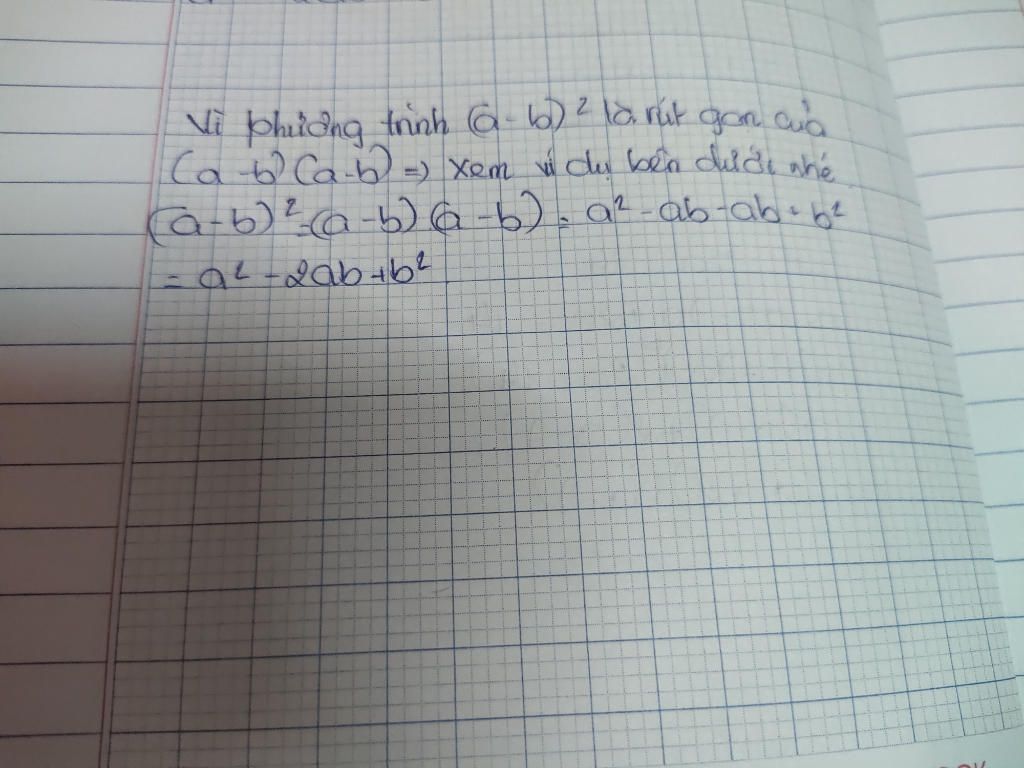 Vì phương trình (a-b)² là rút gọn của
(a-b)(a-b) => xem ví dụ bên dưới nhé
(a-b)²=(a-b)(a-b) = a² - ab - ab + b²
= a² - 2ab + b²